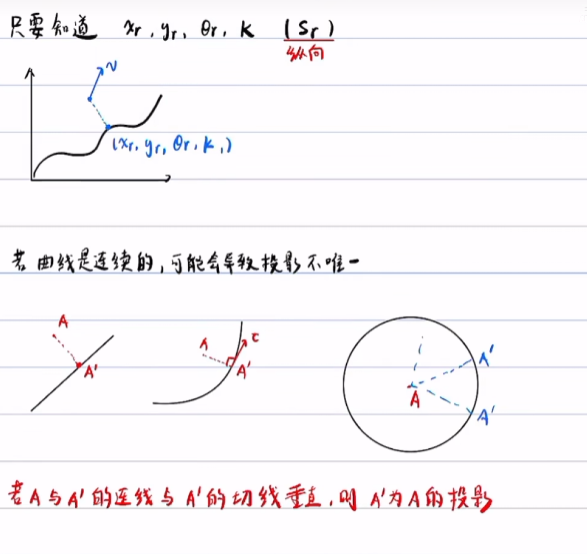 只要知道 xr, yr, θr, k (Sr)
纵向
v
(xr, yr, θr, k,)
若曲线是连续的,可能会导致投影不唯一
A
A'
A
τ
A'
A
A'
A'
若A与A'的连线与A'的切线垂直,则A'为A的投影